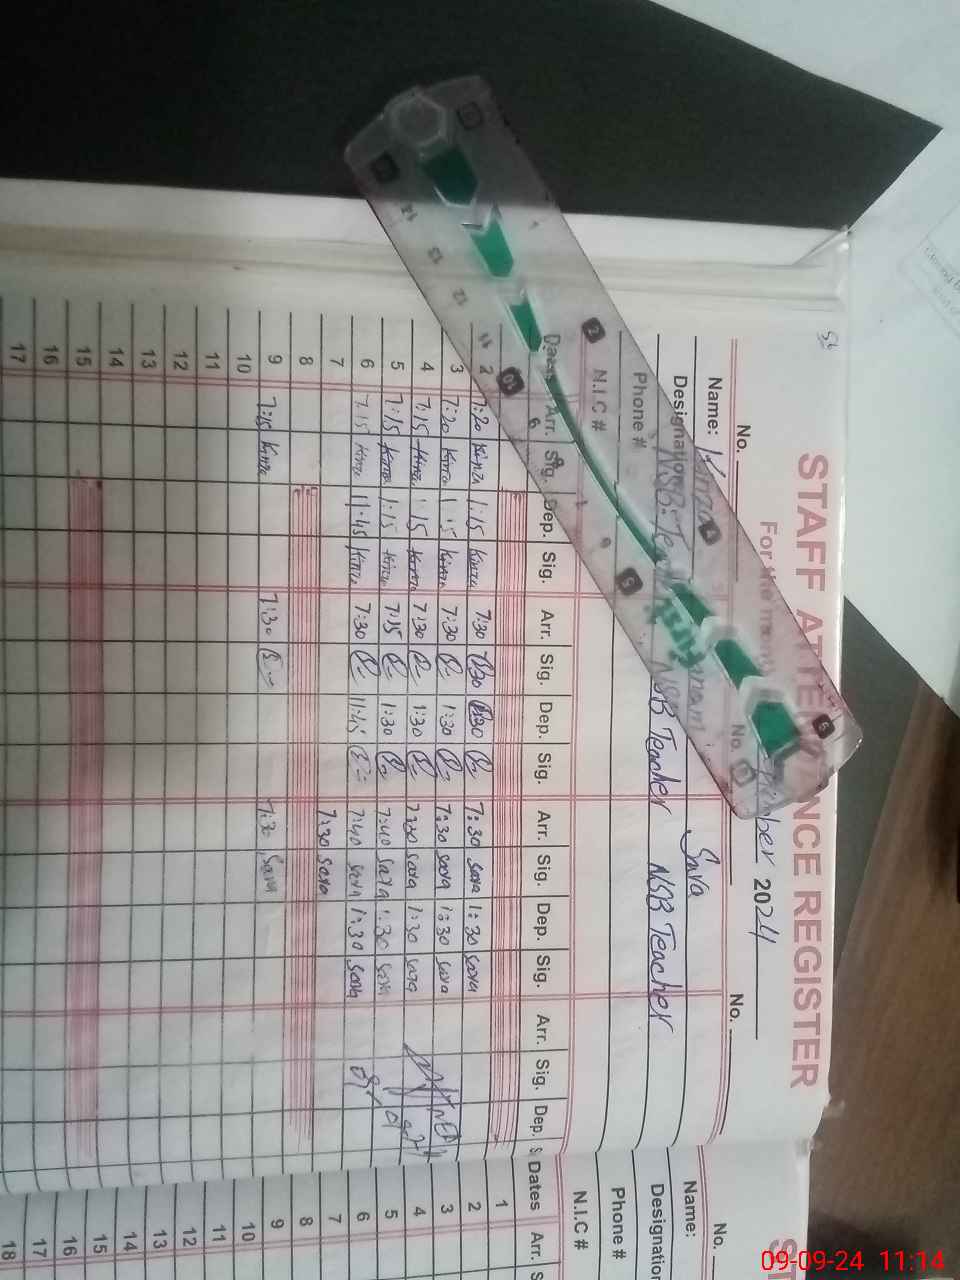 56
STAFF ATTENDANCE REGISTER
For the month 2024
No. No. No.
Name: Kinza Sara
Designation: NSB Teacher NSB Teacher NSB Teacher
Phone #
N.I.C #
Dates Arr. Sig. Dep. Sig. Arr. Sig. Dep. Sig. Arr. Sig. Dep. Sig. Arr. Sig. Dep.
2 7:20 Kinza 1:15 Kinza 7:30 1:30 7:30 sara 1:30 sara
3 7:20 Kinza 1:15 Kinza 7:30 1:30 7:30 sara 1:30 sara
4 7:15 Kinza 1:15 Kinza 7:30 1:30 7:30 sara 1:30 sara
5 7:15 Kinza 1:15 Kinza 7:15 1:30 7:40 sara 1:30 sara
6 7:15 Kinza 11:45 Kinza 7:30 11:45 7:40 sara 1:30 sara
7 7:30 sara
8
9 7:15 Kinza 7:30 7:30 Sara
10
11
12
13
14
15
16
17
ST
No.
Name:
Designation
Phone #
N.I.C #
Dates Arr. S
1
2
3
4
5
6
7
8
9
10
11
12
13
14
15
16
17
18
09-09-24 11:14